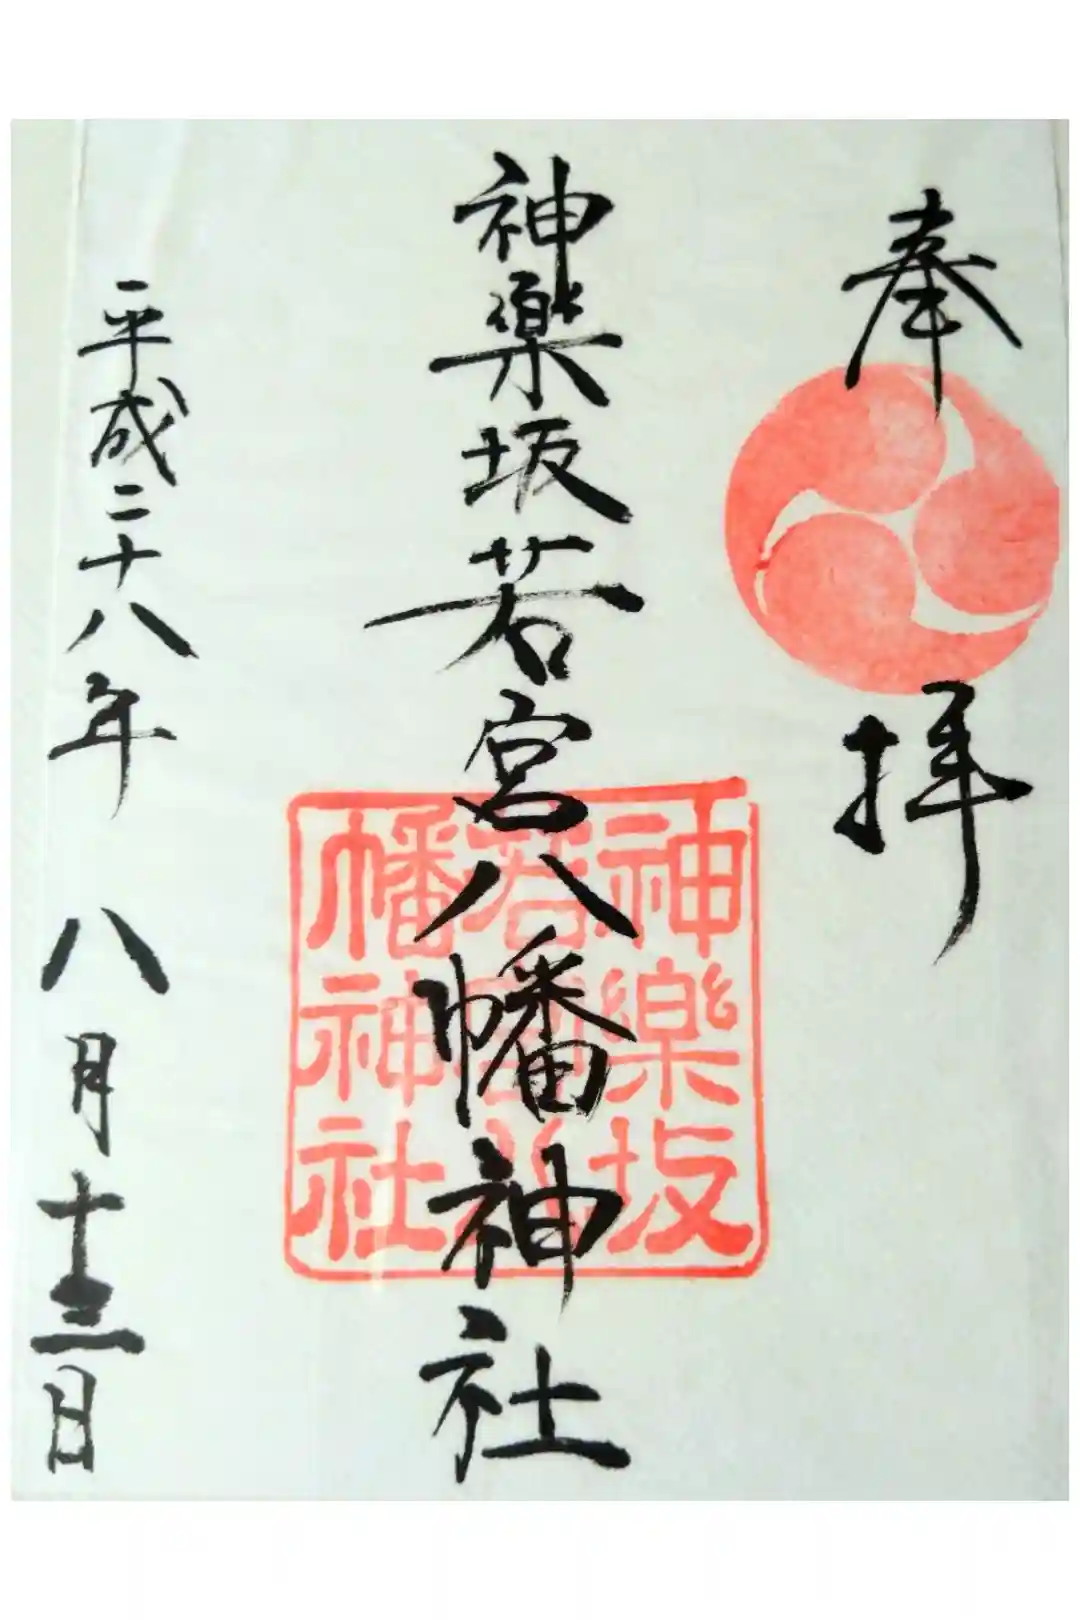 奉拝
神楽坂若宮八幡神社
平成二十八年 八月十三日
神樂坂
若宮八
幡神社